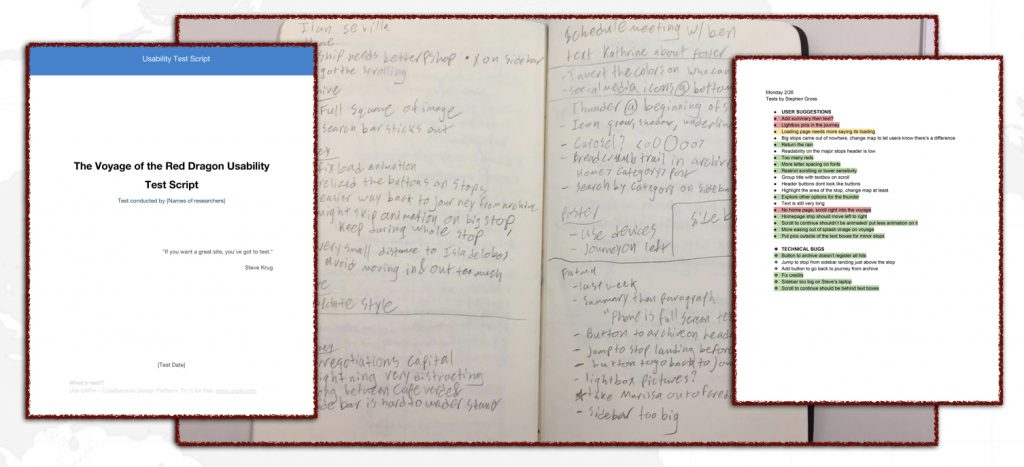 Usability Test Script
The Voyage of the Red Dragon Usability
Test Script
Test conducted by {Names of researchers}
"If you want a great site, you've got to test."
Steve Krug
{Test Date}
What's next?
Ilan Sevilla
ship needs better pshop • X on sidebar
got the scrolling
Full square of image
search bar sticks out
fix load animation
relized the buttons on stops
easier way back to journey from archive
might skip animation on big stop,
keep during whole stop
very small distance to Isla de lobos
avoid moving in & out too much
update style
negotiations capital
lightning very distracting
between Cape verde &
side bar is hard to understand
Schedule meeting w/ ben
text Kathrine about poster
- Invert the colors on
- social media icons @ bottom
- Thunder @ beginning of
- Icon grows, shadow, underline
- Breadcrumb trail in archive
Home > Category > Post
- search by category on sidebar
Poster
- Use devices
- Journey on left
Side b
Fatma
- last week
- Summary then paragraph
"Phone is full screen
- Button to archive on head
- Jump to stop landing before
- button to go back to jou
- lightbox pictures?
* take Marissa out of cred
- sidebar too big
Monday 2/26
Tests by Stephen Gross
● USER SUGGESTIONS
● Add summary then text?
● Lightbox pics in the journey
● Loading page needs more saying its loading
● Big stops came out of nowhere, change map to let users know there's a difference
● Return the rain
● Readability on the major stops header is low
● Too many reds
● More letter spacing on fonts
● Restrict scrolling or lower sensitivity
● Group title with textbox on scroll
● Header buttons dont look like buttons
● Highlight the area of the stop, change map at least
● Explore other options for the thunder
● Text is still very long
● No home page, scroll right into the voyage
● Homepage ship should move left to right
● Scroll to continue shouldn't be animated/ put less animation on it
● More easing out of splash image on voyage
● Put pics outside of the text boxes for minor stops
❖ TECHNICAL BUGS
❖ Button to archive doesn't register all hits
❖ Jump to stop from sidebar landing just above the stop
❖ Add button to go back to journey from archive
❖ Fix credits
❖ Sidebar too big on Steve's laptop
❖ Scroll to continue should be behind text boxes